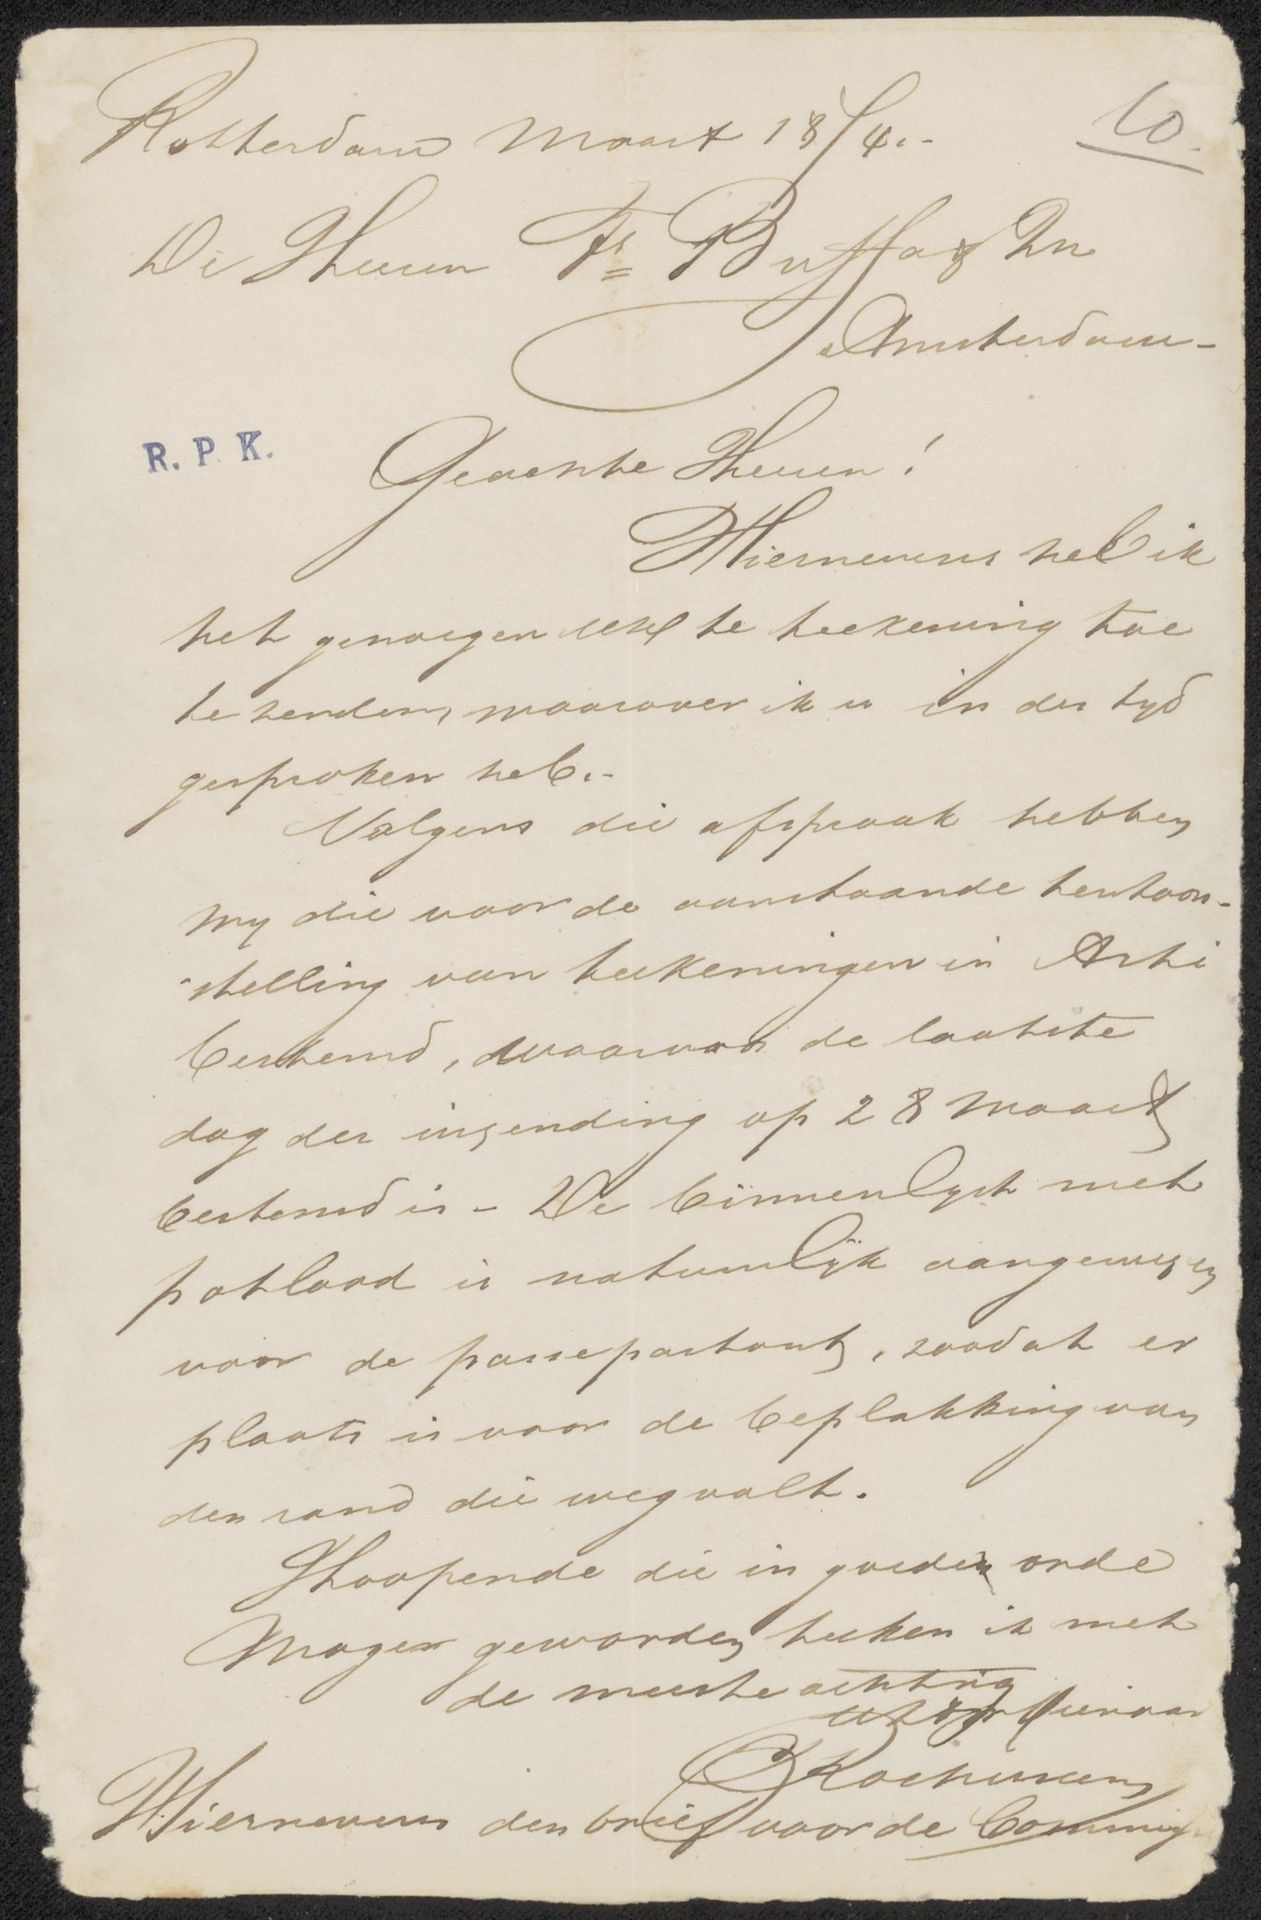 Rotterdam Maart 18/4.-
10.
De Heeren Fs Buffa & Zn
Amsterdam-
R. P. K.
Geachte Heeren!
Hiernevens heb ik
het genoegen UEd te teekening toe
te zenden, waarover ik u in der tyd
gesproken heb.-
Volgens die afspraak hebben
wy die voor de aanstaande tentoon-
stelling van teekeningen in Arti
bestemd, waarvoor de laatste
dag der inzending op 28 Maart
bestemd is - De binnenlyst met
potlood is natuurlyk aangewezen
voor de passepartout, zoodat er
plaats is voor de beplakking van
den rand die wegvalt.
Hoopende die in goede orde
moge geworden, teeken ik met
de meeste achting
Dienaar
Rochussen
Hiernevens den brief voor de Commiss